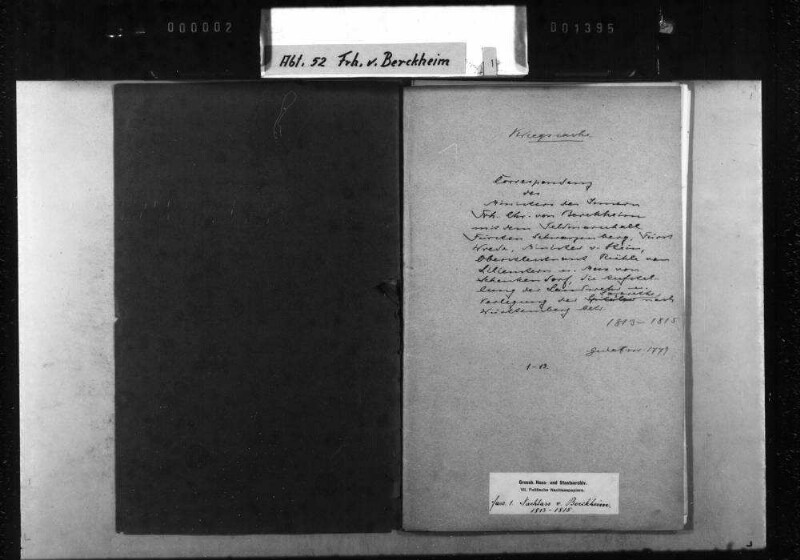 000002
001395
Abt. 52 Frh. v. Berckheim
1
Kriegssache
Correspondenz
des
Ministers des Innern
Frh. Chr. von Berckheim
mit dem Feldmarschall
Fürsten Schwarzenberg, Fürst
Wrede, Minister v. Stein,
Oberstleutnant Rühle von
Lilienstern u. Max von
Schenkendorf, die Aufstel-
lung des Landwehr u.
Verlegung der Lazarette nach
Württemberg betr.
1813-1815
1-12.
Grossh. Haus- und Staatsarchiv.
VII. Politische Nachlasspapiere.
fasc. 1. Nachlass v. Berckheim.
1813-1815